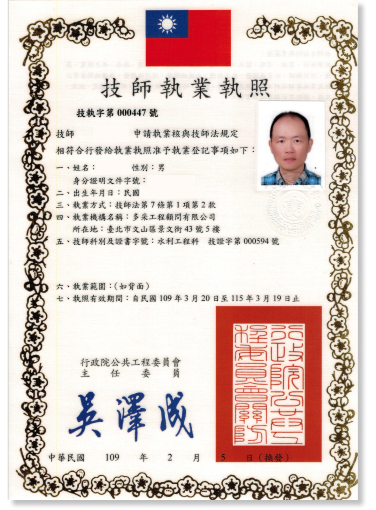 技師執業執照
技執字第000447號
技師　　　　　申請執業核與技師法規定
相符合行發給執業執照准予執業登記事項如下：
一、姓名：　　　性別：男
身分證明文件字號：
二、出生年月日：民國
三、執業方式：技師法第7條第1項第2款
四、執業機構名稱：多采工程顧問有限公司
所在地：臺北市文山區景文街43號5樓
五、技師科別及證書字號：水利工程科　技證字第000594號
六、執業範圍：(如背面)
七、執照有效期間：自民國109年3月20日至115年3月19日止
行政院公共工程委員會
主任委員
吳澤成
行政院公共工程委員會關防
中華民國　109　年　2　月　5　日(換發)